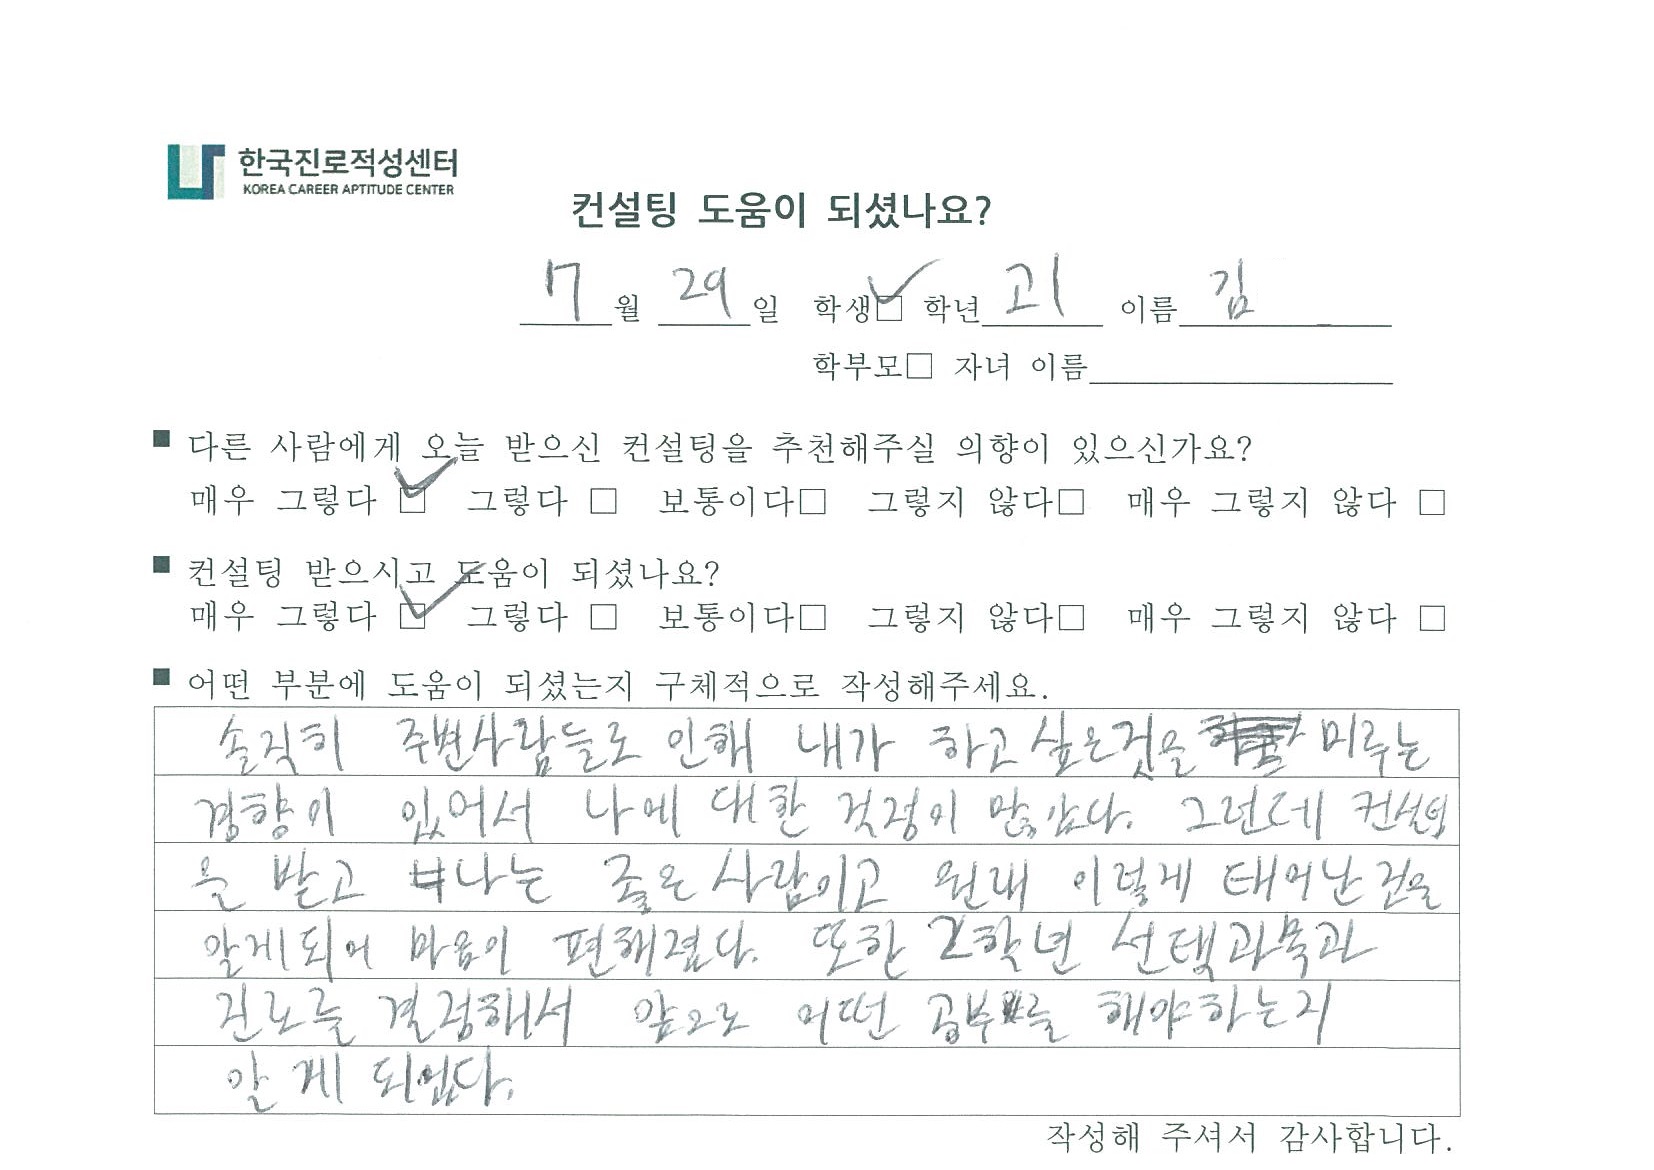 한국진로적성센터
KOREA CAREER APTITUDE CENTER
컨설팅 도움이 되셨나요?
7 월 29 일 학생☑ 학년 고1 이름 김
학부모□ 자녀 이름
■ 다른 사람에게 오늘 받으신 컨설팅을 추천해주실 의향이 있으신가요?
매우 그렇다 ☑ 그렇다 □ 보통이다□ 그렇지 않다□ 매우 그렇지 않다 □
■ 컨설팅 받으시고 도움이 되셨나요?
매우 그렇다 ☑ 그렇다 □ 보통이다□ 그렇지 않다□ 매우 그렇지 않다 □
■ 어떤 부분에 도움이 되셨는지 구체적으로 작성해주세요.
솔직히 주변사람들로 인해 내가 하고 싶은것을 미루는
경향이 있어서 나에 대한 걱정이 많았다. 그런데 컨설팅
을 받고 나는 좋은 사람이고 원래 이렇게 태어난 것을
알게되어 마음이 편해졌다. 또한 2학년 선택과목과
진로를 결정해서 앞으로 어떤 공부를 해야하는지
알게 되었다.
작성해 주셔서 감사합니다.